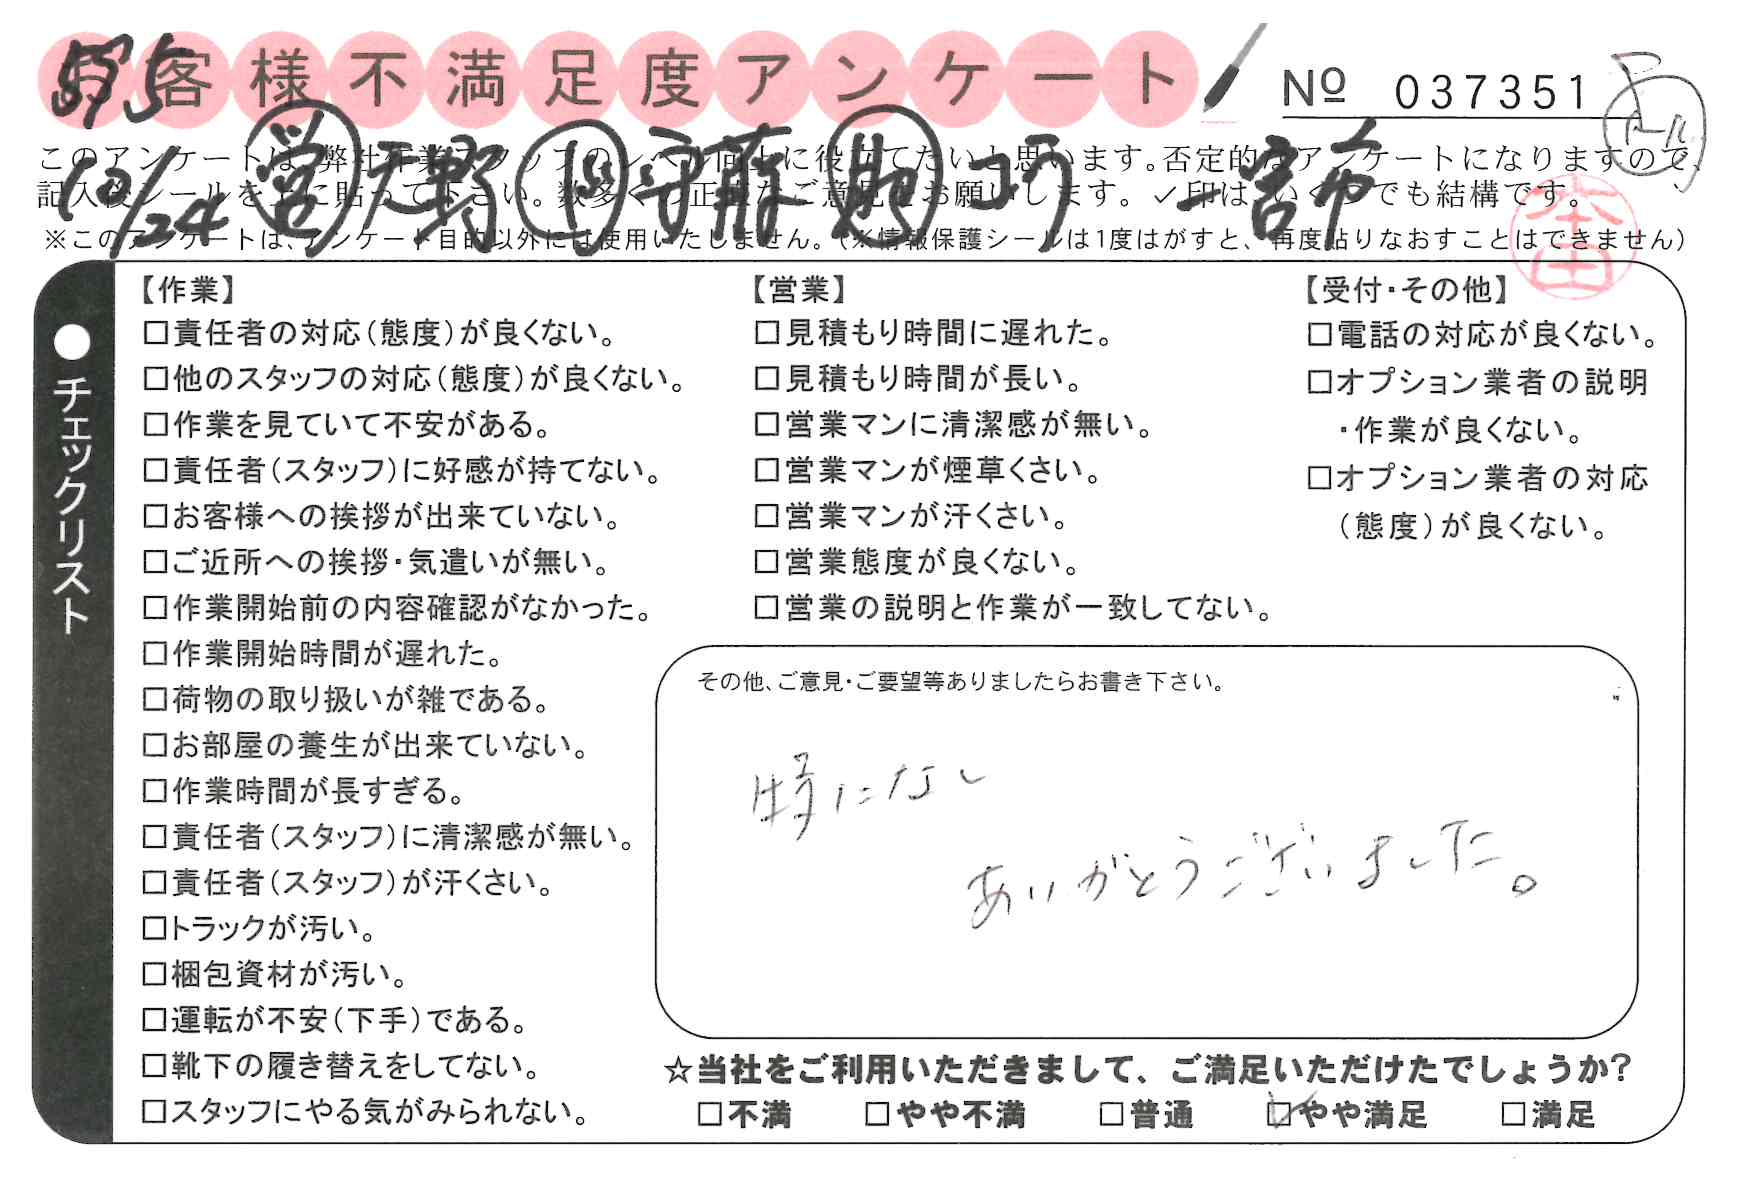 お客様不満足度アンケート
№ 037351
このアンケートは、弊社作業スタッフのレベル向上に役立てたいと思います。否定的なアンケートになりますので、
記入後シールを上に貼って下さい。数多くの正直なご意見をお願いします。✓印は、いくつでも結構です。
※このアンケートは、アンケート目的以外には使用いたしません。(※情報保護シールは1度はがすと、再度貼りなおすことはできません)
575
12/24 営 天野 ト 守府 助 コウ 一言希
●チェックリスト
【作業】
□責任者の対応(態度)が良くない。
□他のスタッフの対応(態度)が良くない。
□作業を見ていて不安がある。
□責任者(スタッフ)に好感が持てない。
□お客様への挨拶が出来ていない。
□ご近所への挨拶・気遣いが無い。
□作業開始前の内容確認がなかった。
□作業開始時間が遅れた。
□荷物の取り扱いが雑である。
□お部屋の養生が出来ていない。
□作業時間が長すぎる。
□責任者(スタッフ)に清潔感が無い。
□責任者(スタッフ)が汗くさい。
□トラックが汚い。
□梱包資材が汚い。
□運転が不安(下手)である。
□靴下の履き替えをしてない。
□スタッフにやる気がみられない。
【営業】
□見積もり時間に遅れた。
□見積もり時間が長い。
□営業マンに清潔感が無い。
□営業マンが煙草くさい。
□営業マンが汗くさい。
□営業態度が良くない。
□営業の説明と作業が一致してない。
【受付・その他】
□電話の対応が良くない。
□オプション業者の説明
・作業が良くない。
□オプション業者の対応
(態度)が良くない。
その他、ご意見・ご要望等ありましたらお書き下さい。
特になし
ありがとうございました。
☆当社をご利用いただきまして、ご満足いただけたでしょうか?
□不満 □やや不満 □普通 ☑やや満足 □満足